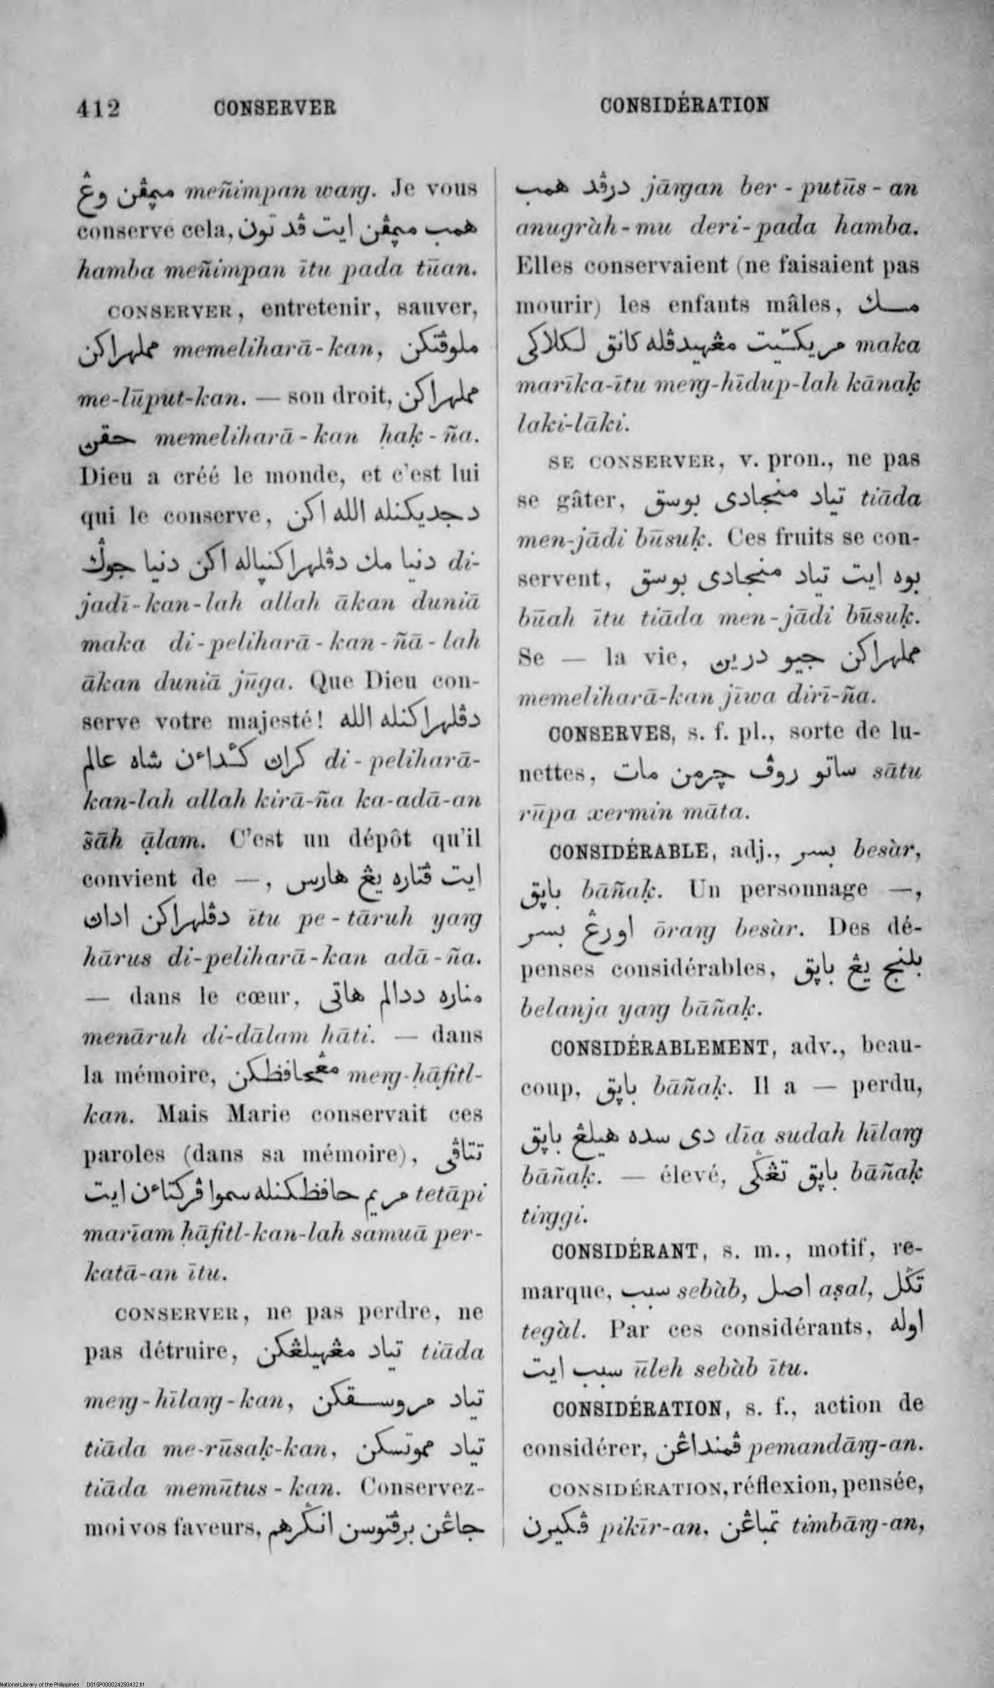 412 CONSERVER CONSIDÉRATION
مڽمڤن وڠ meñimpan warg. Je vous
conserve cela, همب مڽمڤن ايت ڤد تون
hamba meñimpan ītu pada tūan.
CONSERVER, entretenir, sauver,
مملهراكن memeliharā-kan, ملوڤتكن
me-lūput-kan. — son droit, مملهراكن
حقن memeliharā-kan ḥaḳ-ña.
Dieu a créé le monde, et c'est lui
qui le conserve, دجديكنله الله اكن
دنيا مك دڤلهراكنڽاله اكن دنيا جوڬ di-
jadī-kan-lah allah ākan duniā
maka di-peliharā-kan-ñā-lah
ākan duniā jūga. Que Dieu con-
serve votre majesté! دڤلهراكنله الله
كران كادأن شاه عالم di-peliharā-
kan-lah allah kirā-ña ka-adā-an
šāh ạ̄lam. C'est un dépôt qu'il
convient de —, ايت ڤتاره يڠ هارس
دڤلهراكن ادان ītu pe-tāruh yarg
hārus di-peliharā-kan adā-ña.
— dans le cœur, مناره ددالم هاتي
menāruh di-dālam hāti. — dans
la mémoire, مڠحافظكن merg-ḥāfitl-
kan. Mais Marie conservait ces
paroles (dans sa mémoire), تتاڤي
مريم حافظكنله سموا ڤركتاءن ايت tetāpi
marīam ḥāfitl-kan-lah samuā per-
katā-an ītu.
CONSERVER, ne pas perdre, ne
pas détruire, تياد مڠهيلڠكن tiāda
merg-hīlarg-kan, تياد مروسقكن
tiāda me-rūsaḳ-kan, تياد مموتسكن
tiāda memūtus-kan. Conservez-
moi vos faveurs, جاڠن برڤتوسن انڬرهم
درڤد همب jārgan ber-putūs-an
anugràh-mu deri-pada hamba.
Elles conservaient (ne faisaient pas
mourir) les enfants mâles, مك
مريكئيت مڠهيدڤله كانق لكلاكي maka
marīka-ītu merg-hīdup-lah kānaḳ
laki-lāki.
SE CONSERVER, v. pron., ne pas
se gâter, تياد منجادي بوسق tiāda
men-jādi būsuḳ. Ces fruits se con-
servent, بوه ايت تياد منجادي بوسق
būah ītu tiāda men-jādi būsuḳ.
Se — la vie, مملهراكن جيو درين
memeliharā-kan jīwa dirī-ña.
CONSERVES, s. f. pl., sorte de lu-
nettes, ساتو روڤ چرمن مات sātu
rūpa xermin māta.
CONSIDÉRABLE, adj., بسر besàr,
باڽق bāñaḳ. Un personnage —,
اورڠ بسر ōrarg besàr. Des dé-
penses considérables, بلنج يڠ باڽق
belanja yarg bāñaḳ.
CONSIDÉRABLEMENT, adv., beau-
coup, باڽق bāñaḳ. Il a — perdu,
دي سده هيلڠ باڽق dīa sudah hīlarg
bāñaḳ. — élevé, باڽق تڠڬي bāñaḳ
tirggi.
CONSIDÉRANT, s. m., motif, re-
marque, سبب sebàb, اصل aṣal, تڬل
tegàl. Par ces considérants, اوله
سبب ايت ūleh sebàb ītu.
CONSIDÉRATION, s. f., action de
considérer, ڤمنداڠن pemandārg-an.
CONSIDÉRATION, réflexion, pensée,
ڤكيرن pikīr-an, تمباڠن timbārg-an,
National Library of the Philippines